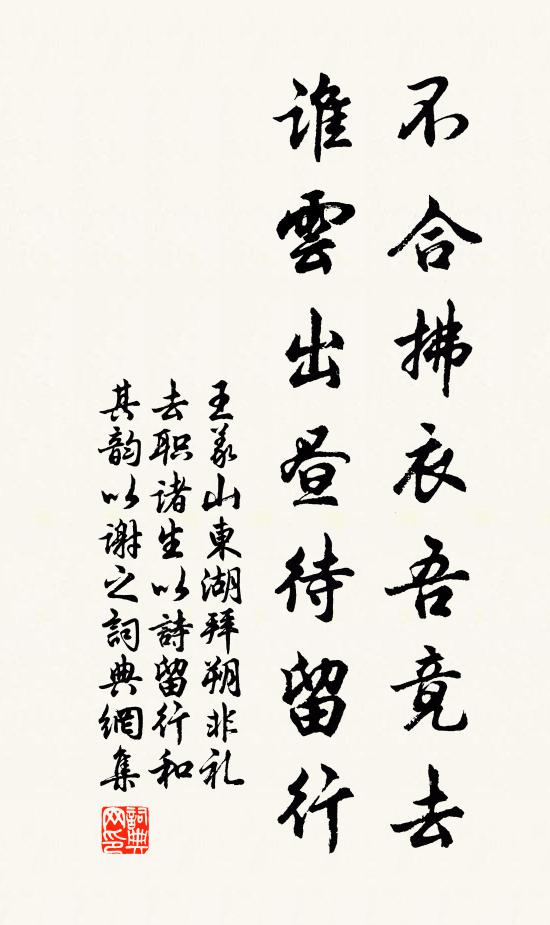 不合拂衣吾竟去
谁雲出昼待留行
王义山東湖拜朔非礼
去职诸生以詩留行和
其韵以谢之詞典網集
詞典网印